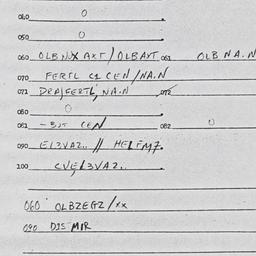 040 0
050 0
060 OLBNX AXT/OLBAYT 061 OLB N A.N
070 FERTL C1 CEN/NA.N
071 DRAJFERTL, NA.N 072
080 0
081 -BJT CEN 082 0
090 E13VA2.. // HELFM7.
100 CVE13VA2.
060 OLBZEGZ/XX
090 DJS MIR